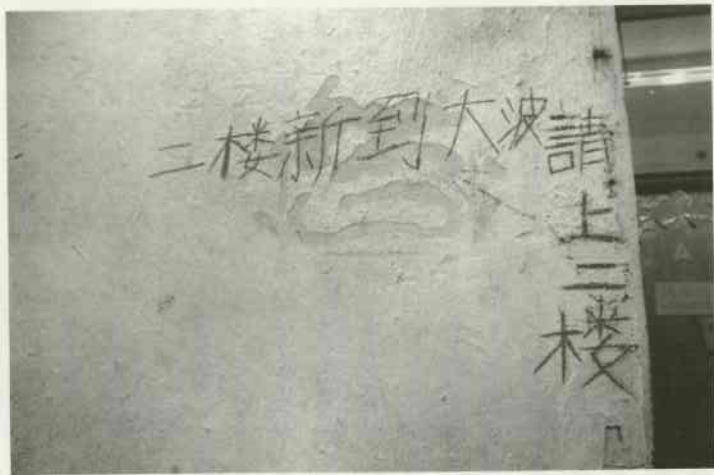 二楼新到大波
請上二楼